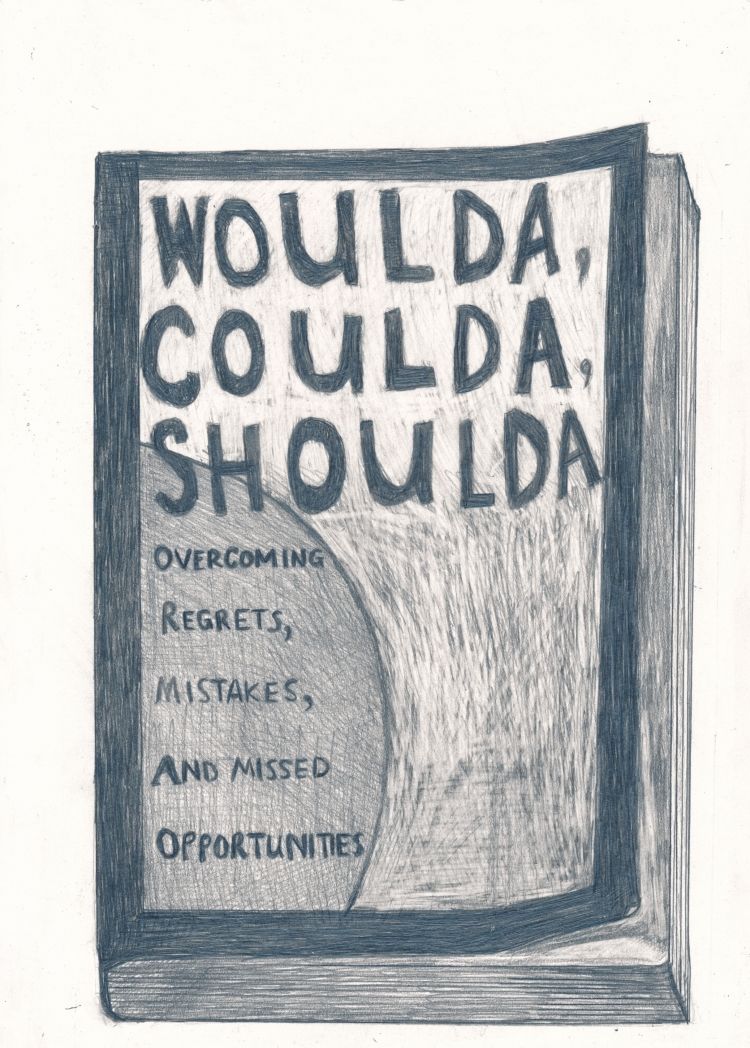 WOULDA,
COULDA,
SHOULDA
OVERCOMING
REGRETS,
MISTAKES,
AND MISSED
OPPORTUNITIES